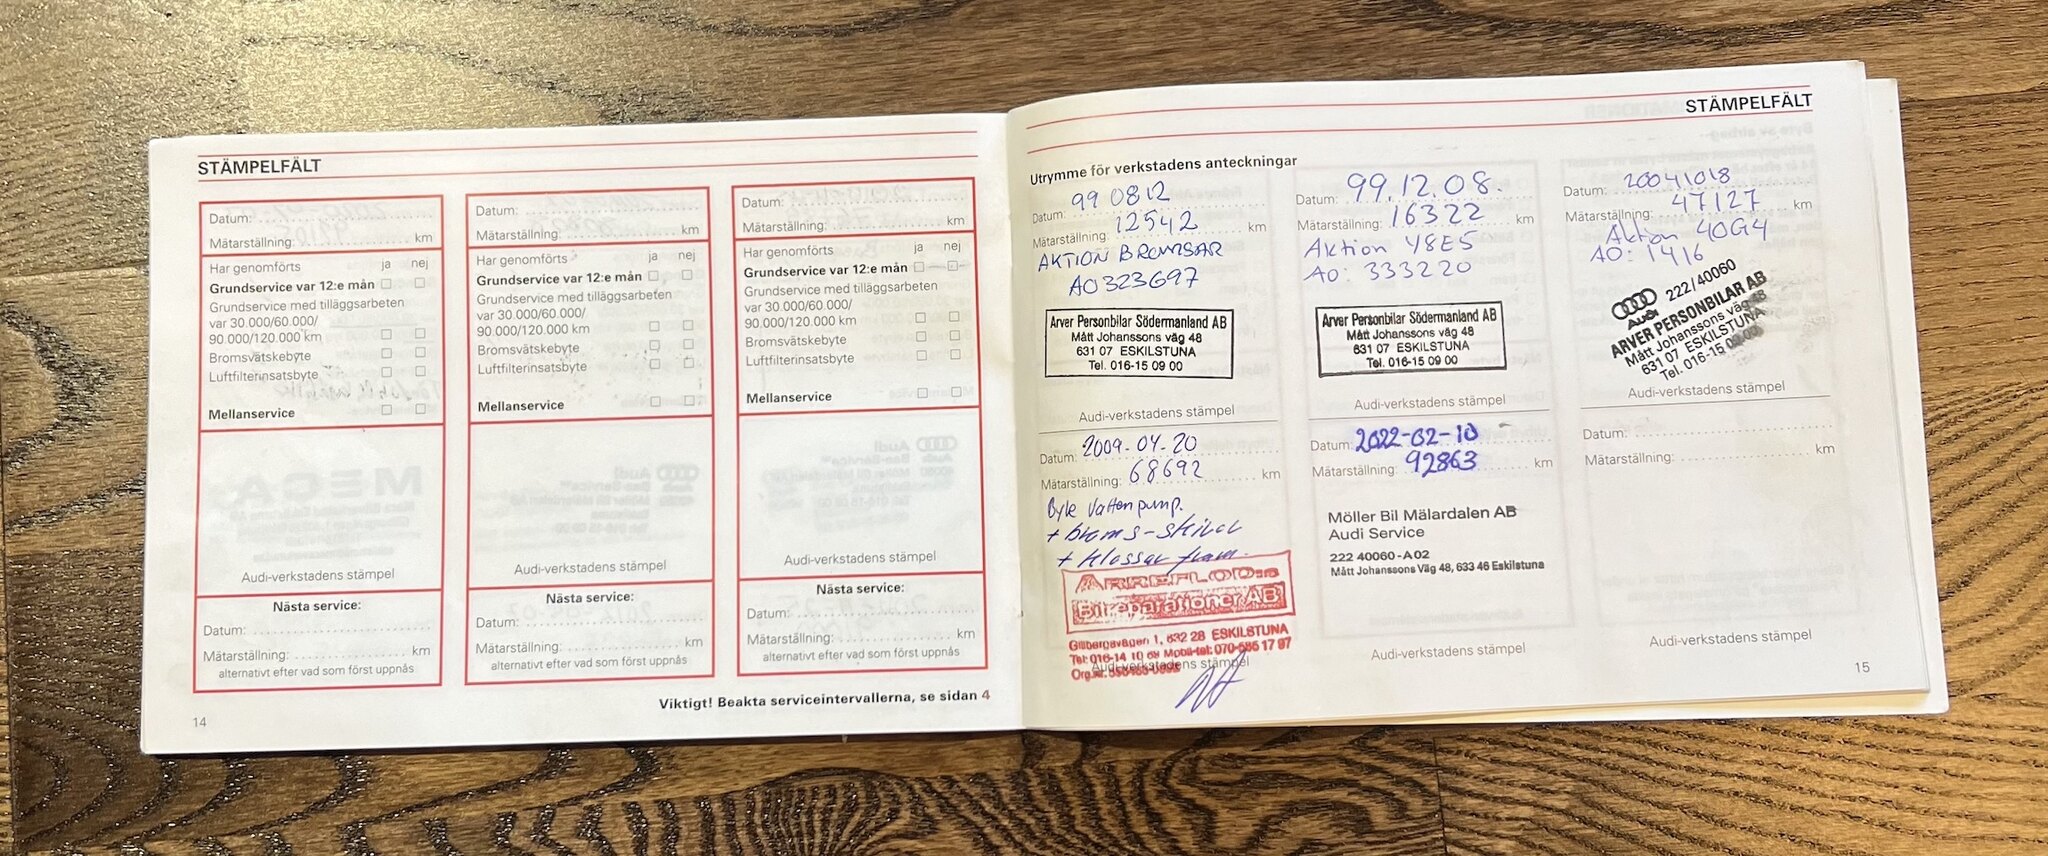 STÄMPELFÄLT
Datum:
Mätarställning: km
Har genomförts ja nej
Grundservice var 12:e mån
Grundservice med tilläggsarbeten
var 30.000/60.000/
90.000/120.000 km
Bromsvätskebyte
Luftfilterinsatsbyte
Mellanservice
Audi-verkstadens stämpel
Nästa service:
Datum:
Mätarställning: km
alternativt efter vad som först uppnås
Datum:
Mätarställning: km
Har genomförts ja nej
Grundservice var 12:e mån
Grundservice med tilläggsarbeten
var 30.000/60.000/
90.000/120.000 km
Bromsvätskebyte
Luftfilterinsatsbyte
Mellanservice
Audi-verkstadens stämpel
Nästa service:
Datum:
Mätarställning: km
alternativt efter vad som först uppnås
Datum:
Mätarställning: km
Har genomförts ja nej
Grundservice var 12:e mån
Grundservice med tilläggsarbeten
var 30.000/60.000/
90.000/120.000 km
Bromsvätskebyte
Luftfilterinsatsbyte
Mellanservice
Audi-verkstadens stämpel
Nästa service:
Datum:
Mätarställning: km
alternativt efter vad som först uppnås
Viktigt! Beakta serviceintervallerna, se sidan 4
14
STÄMPELFÄLT
Utrymme för verkstadens anteckningar
Datum: 990812
Mätarställning: 12542 km
AKTION BROMSAR
AO323697
Arver Personbilar Södermanland AB
Mått Johanssons väg 48
631 07 ESKILSTUNA
Tel. 016-15 09 00
Audi-verkstadens stämpel
Datum: 99.12.08.
Mätarställning: 16322 km
Aktion 48E5
AO: 333220
Arver Personbilar Södermanland AB
Mått Johanssons väg 48
631 07 ESKILSTUNA
Tel. 016-15 09 00
Audi-verkstadens stämpel
Datum: 20041018
Mätarställning: 47127 km
Aktion 40G4
AO: 1416
Audi 222/40060
ARVER PERSONBILAR AB
Mått Johanssons väg 48
631 07 ESKILSTUNA
Tel. 016-15 09 00
Audi-verkstadens stämpel
Datum: 2009-04-20
Mätarställning: 68692 km
Byte Vattenpump.
+ broms-skivor
+ klossar fram.
ARREFLOD:s
Bilreparationer AB
Gillbergavägen 1, 632 28 ESKILSTUNA
Tel: 016-14 10 68 Mobil-tel: 070-585 17 97
Org.nr.
Audi-verkstadens stämpel
Datum: 2022-02-10
Mätarställning: 92863 km
Möller Bil Mälardalen AB
Audi Service
222 40060-A02
Mått Johanssons Väg 48, 633 46 Eskilstuna
Audi-verkstadens stämpel
Datum:
Mätarställning: km
Audi-verkstadens stämpel
15